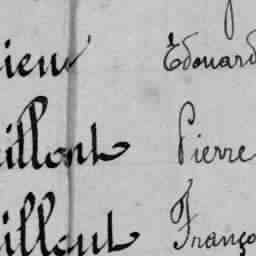 ien Edouard
illont Pierre
illaut Franço